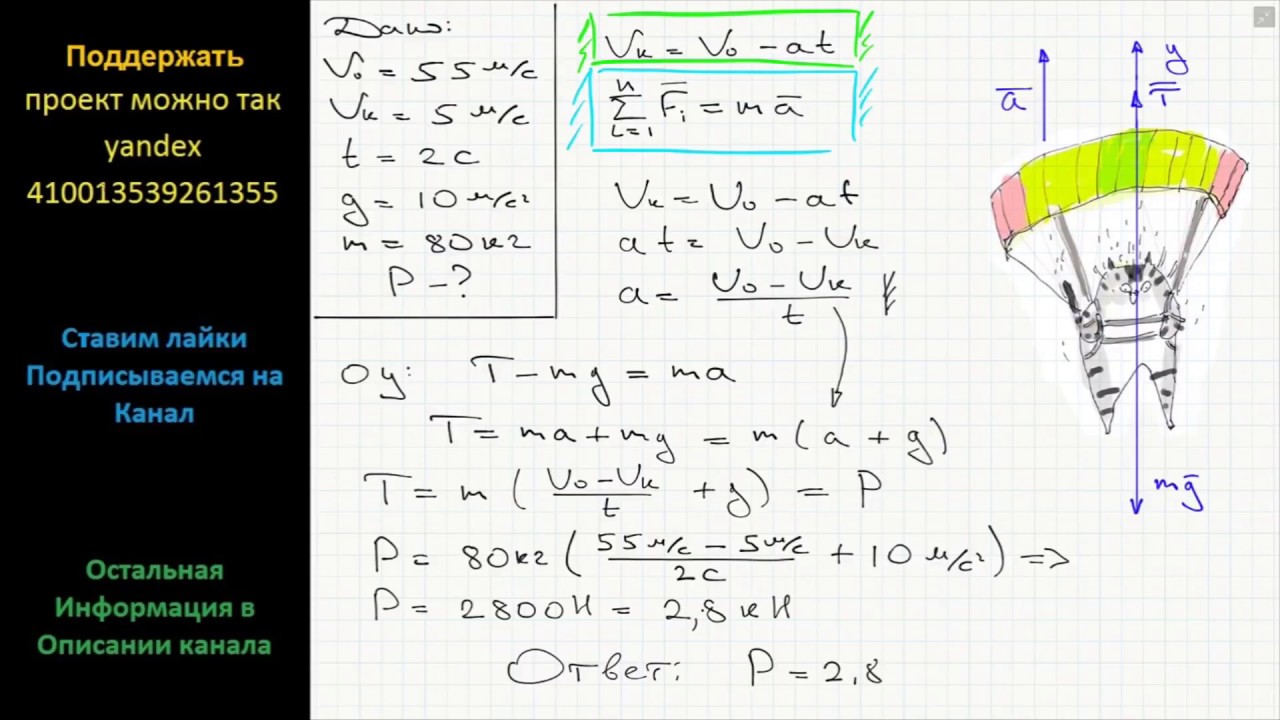 Поддержать
проект можно так
yandex
410013539261355
Ставим лайки
Подписываемся на
Канал
Остальная
Информация в
Описании канала
Дано:
V₀ = 55 м/с
Vк = 5 м/с
t = 2 с
g = 10 м/с²
m = 80 кг
P - ?
Vк = V₀ - at
n
∑ F̅i = m a̅
i=1
Vк = V₀ - at
at = V₀ - Vк
a = (V₀ - Vк) / t
Oy: T - mg = ma
T = ma + mg = m(a + g)
T = m((V₀ - Vк) / t + g) = P
P = 80 кг((55 м/с - 5 м/с) / 2 с + 10 м/с²) =>
P = 2800 Н = 2,8 кН
Ответ: P = 2,8
a̅
y
T̅
mg̅